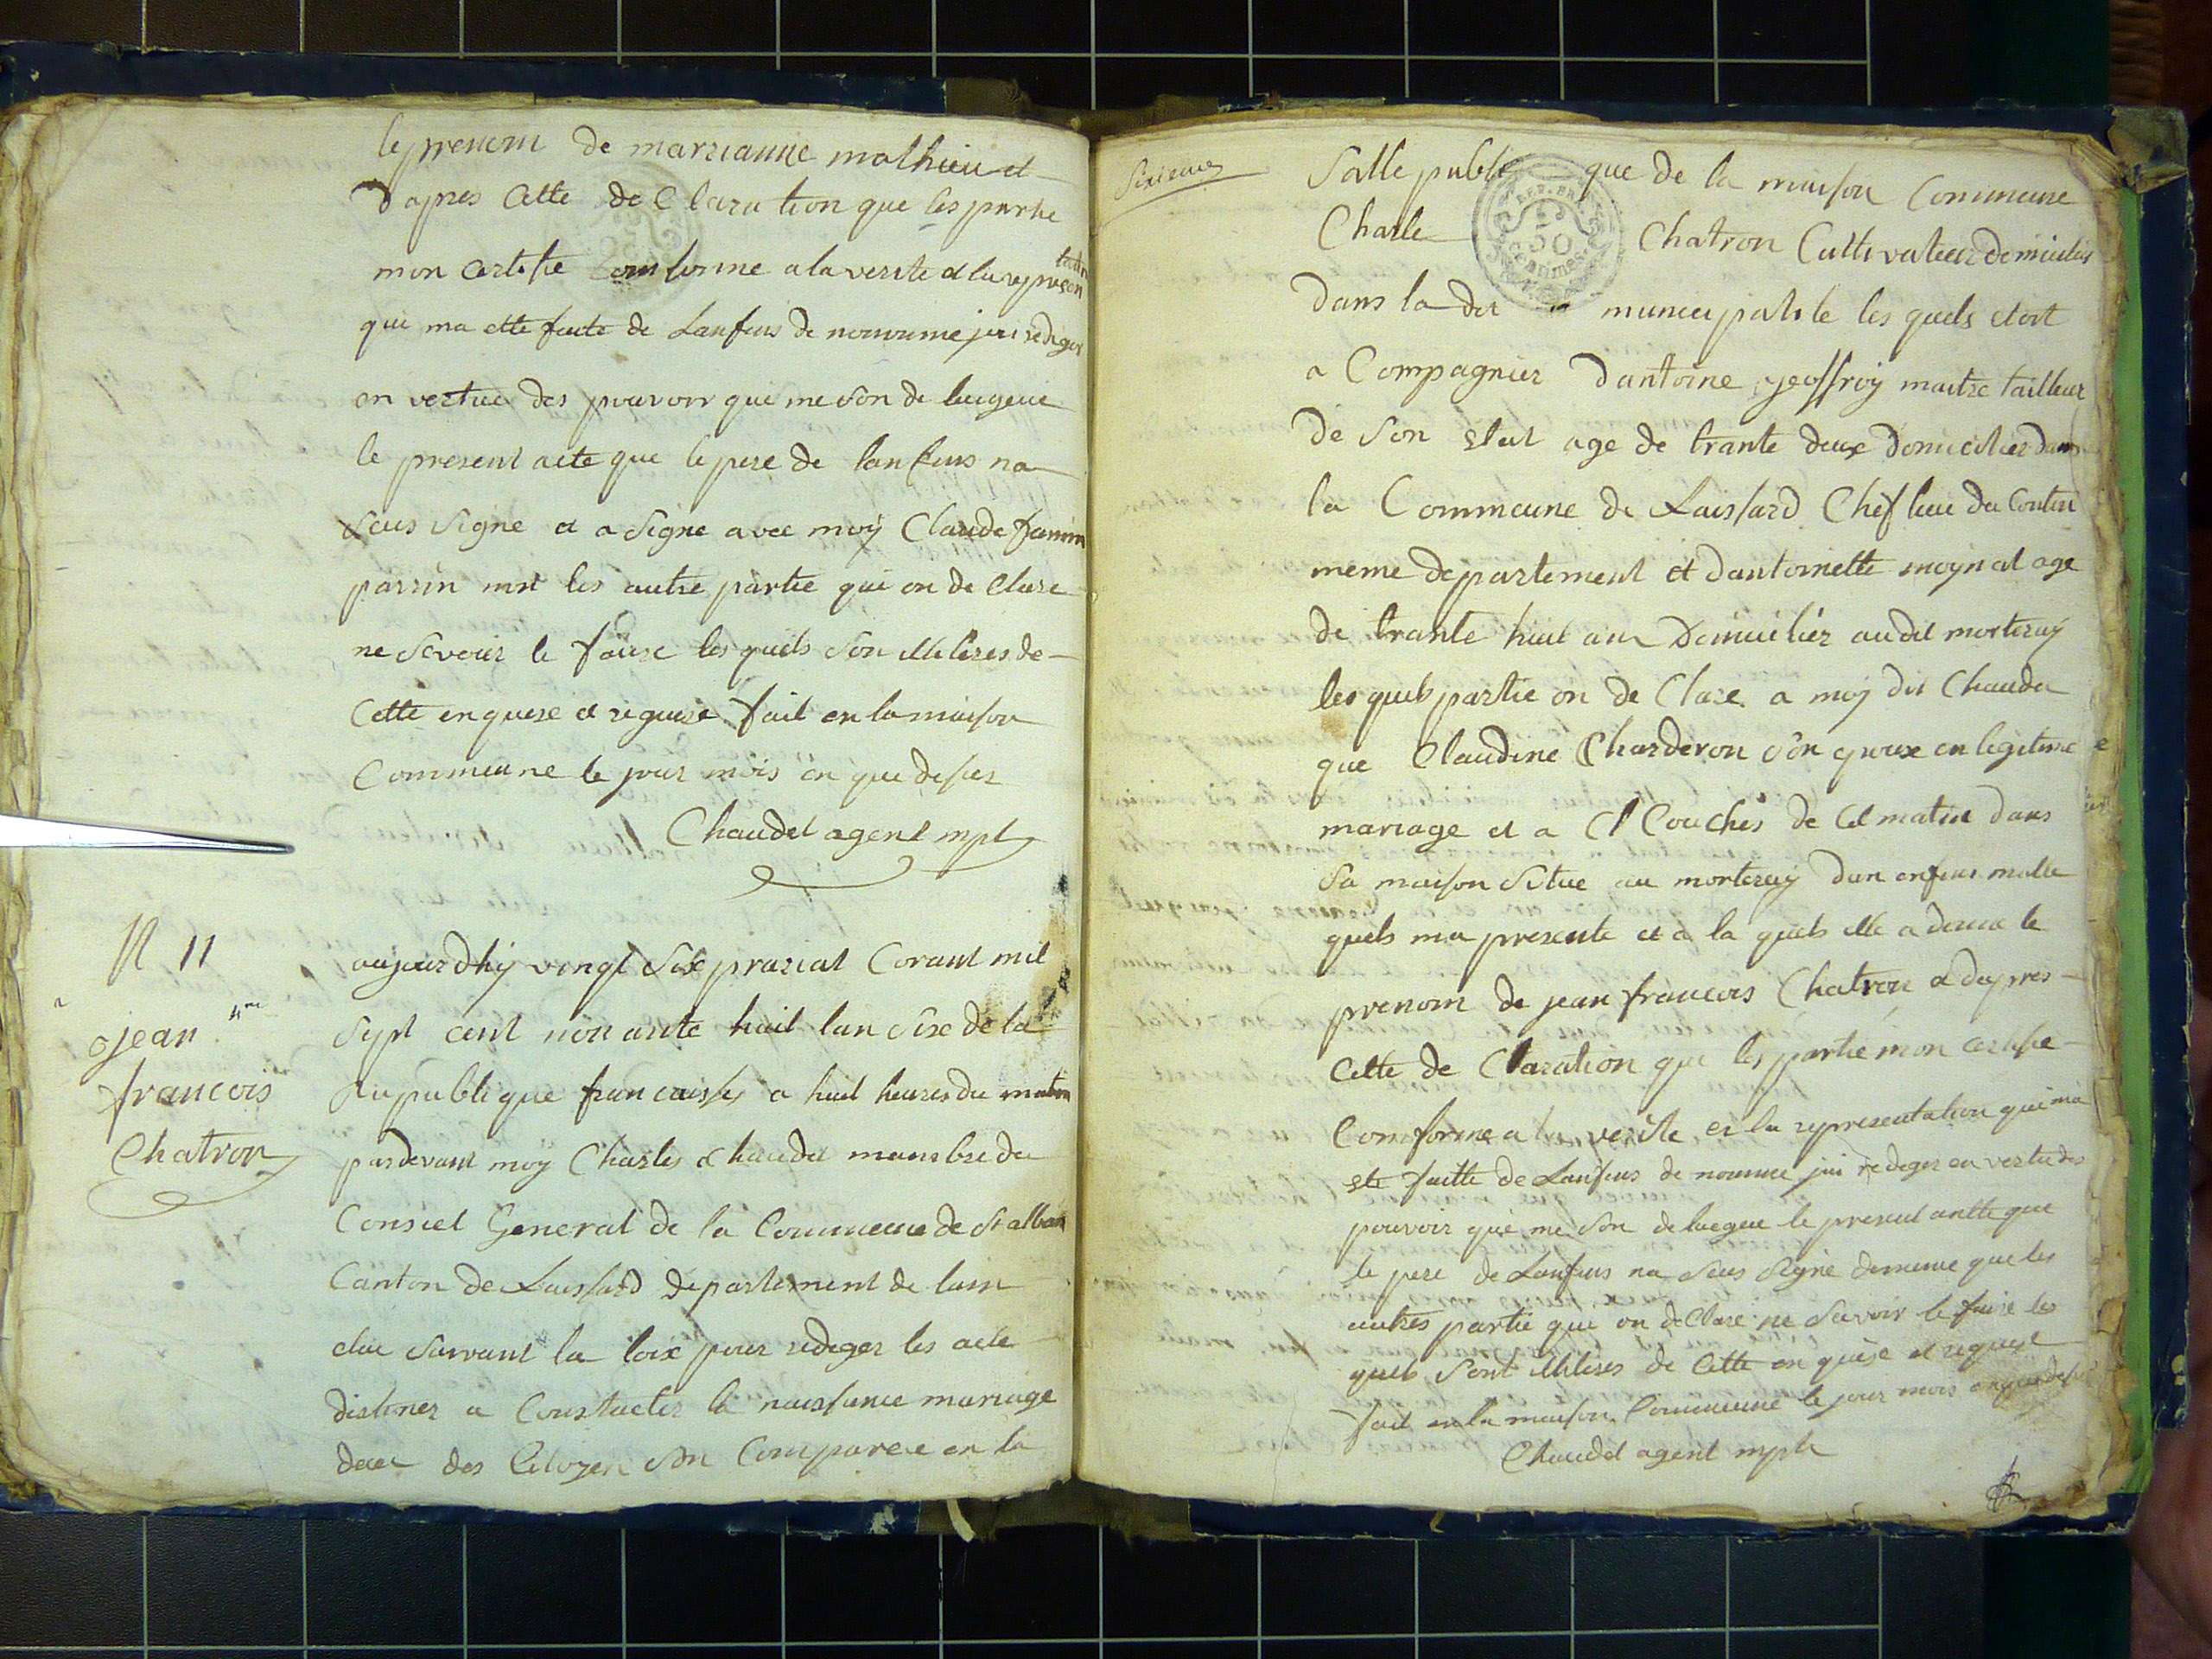 le prenom de marrianne mathieu et
d'apres Cette de Claration que les partie
mon certifie Comforme a la verite et la represan tation
qui ma ette faite de Lanfens de nommé jai rediger
en vertue des pouvoir qui me Son de luegeue
le present acte que le pere de lanfens na
Seus Signe et a Signe avec moÿ Claude
parrin les autre partie qui on de Clare
ne Sevoir le faire les quels Son
Cette enquise et requise fait en la maison
Commune le jour mois en que desus
Chaudet agent mpl
N 11
jean
francois
Chatron
aujourdhÿ vingt Six prarial Corant mil
Sept cent nonante huit lan Six de la
Republique francaisse a huit heures du matin
pardevant moÿ Charles Chaudet manbre du
Consiel General de la Commune de St alban
Canton de Laissard departement de lain
elue Suivant la loix pour rediger les acte
distiner a Constacter la naissance mariage
decer des Citoyen Son Comparue en la
Sixieme
Salle publi que de la maison Commune
Charle Chatron Cultivateur domicilier
dans la dit municipalite les quels etoit
a Compagnier dantoine geoffroÿ maitre tailleur
de Son etat age de trante deux domicilier dans
la Commune de Laissard Cheflieu du Conton
meme departement et dantoinette moynat age
de trante huit ans Domicilier audit morteraÿ
les quels partie on de Clare a moÿ dit Chaudet
que Claudine Charderon Son epouse en legitime
mariage et a Couches de Cet matin dans
Sa maison Situe au morteraÿ dun enfans malle
quels ma presente et a la quels elle a donne le
prenom de jean francois Chatron et dapres
Cette de Claration que les partie mon certifie
Comforme a la verite et la representation qui ma
ete faitte de Lanfens de nomme jai rediger en vertu des
pouvoir que me Son de luegeue le present actte que
le pere de Lanfens na Seus Signe dememe que les
autres partie qui on de Clare ne Savoir le faire les
quels Sont de Cette enquise et requise
fait en la maison Commune le jour mois en que desus
Chaudet agent mple